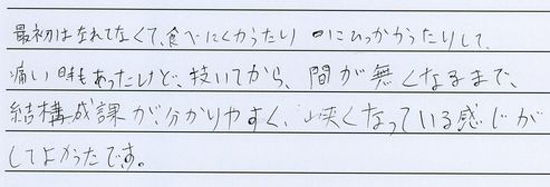 最初はなれてなくて、食べにくかったり口にひっかかったりして、
痛い時もあったけど、抜いてから、間が無くなるまで、
結構成課が、分かりやすく、狭くなっている感じが
してよかったです。